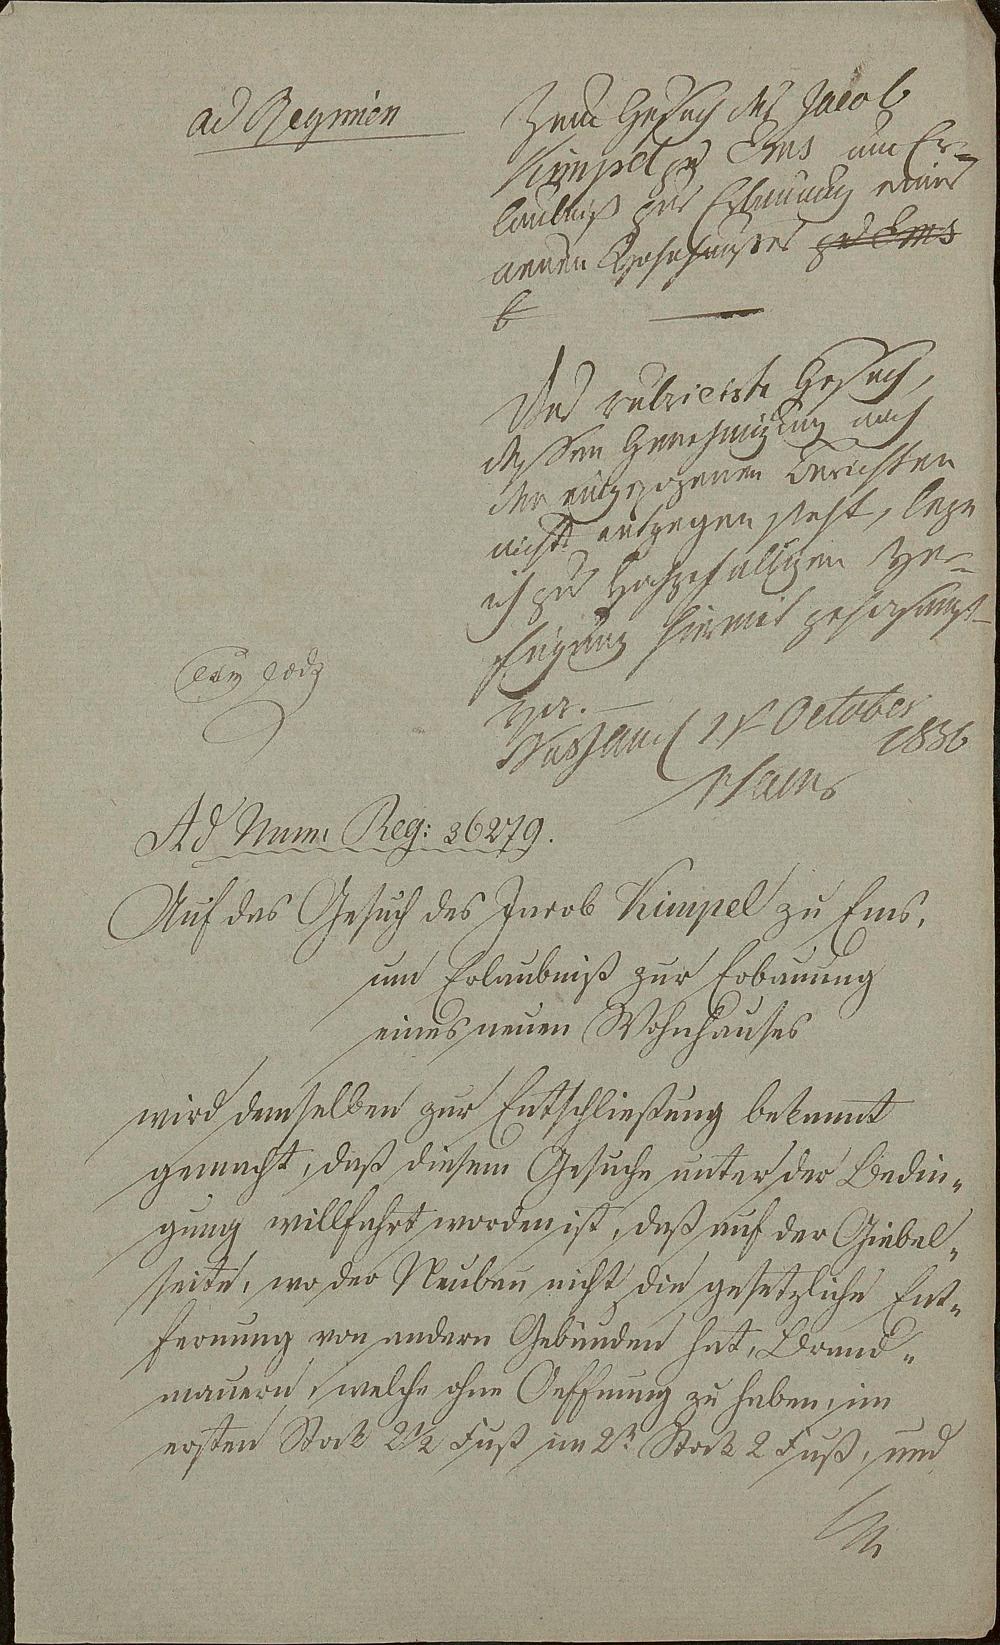 ad Regimen
Zum Gesuch des Jacob
Kimpel zu Ems um Er-
laubniß zur Erbauung eines
neuen Wohnhauses zu Ems
Das rubricirte Gesuch,
dessen Genehmigung nach
den eingezogenen Berichten
nichts entgegen steht, lege
ich zur hochgefälligen Ver-
fügung hiermit gehorsamst
vor. —
Nassau October
1836
Ad Num. Reg: 36279.
Auf das Gesuch des Jacob Kimpel zu Ems,
um Erlaubniß zur Erbauung
eines neuen Wohnhauses
wird demselben zur Entschließung bekannt
gemacht, daß diesem Gesuche unter der Bedin-
gung willfahrt worden ist, daß auf der Giebel-
seite, wo der Neubau nicht die gesetzliche Ent-
fernung von andern Gebäuden hat, Brand-
mauern, welche ohne Oeffnung zu haben, im
ersten Stock 2 1/2 Fuß im 2t Stock 2 Fuß, und